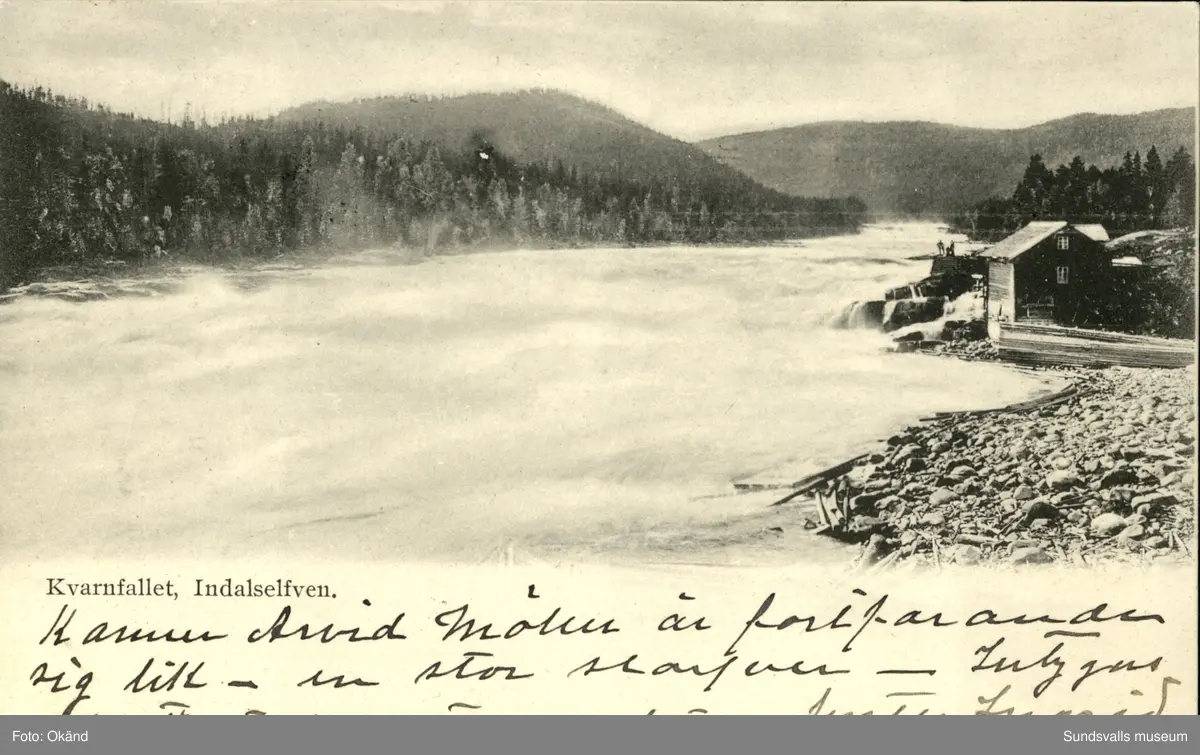 Kvarnfallet, Indalselfven.
Kamrer Arvid Molin är fortfarande
sig lik – en stor slarfver – Intygas
Ingrid
Foto: Okänd
Sundsvalls museum